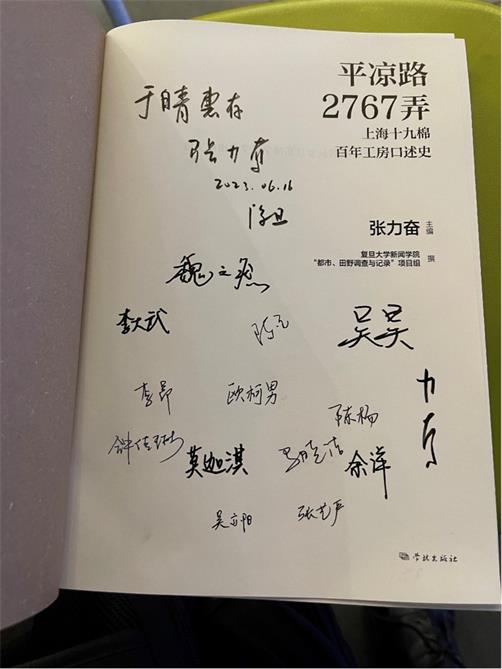 平凉路
2767弄
上海十九棉
百年工房口述史
张力奋 主编
复旦大学新闻学院
“都市、田野调查与记录”项目组 撰
于晴惠存
张力奋
2023.06.16
复旦
李大武
吴昊
李昂
欧柯男
陈杨
莫迦淇
余洋
力奋
学林出版社